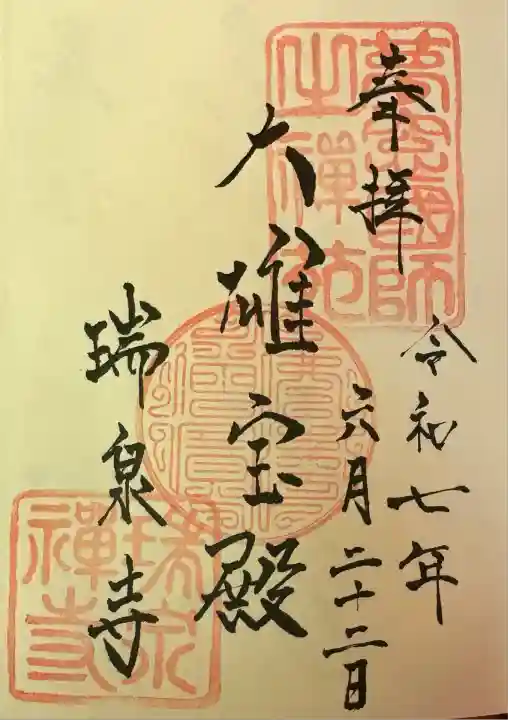 奉拝
令和七年
六月二十二日
大雄宝殿
瑞泉寺
夢窓國師
瑞泉
禅寺